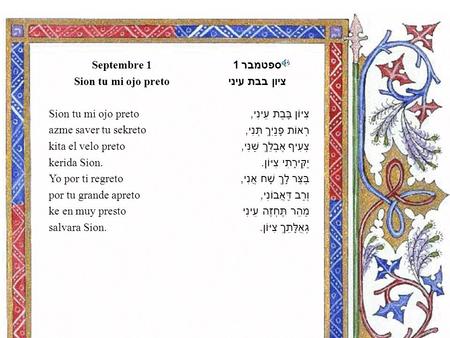 Septembre 1 ספטמבר 1
Sion tu mi ojo preto ציון בבת עיני
Sion tu mi ojo preto צִיּוֹן בָּבַת עֵינִי,
azme saver tu sekreto רְאוֹת פָּנַיִךְ תְּנִי,
kita el velo preto צָעִיף אֶבְלֵךְ שַׁנִּי,
kerida Sion. יַקִּירָתִי צִיּוֹן.
Yo por ti regreto בְּצַר לָךְ שָׁח אֲנִי,
por tu grande apreto וְרַב דַּאֲבוֹנִי,
ke en muy presto מַהֵר תֶּחֱזֶה עֵינִי
salvara Sion. גְּאֻלָּתֵךְ צִיּוֹן.